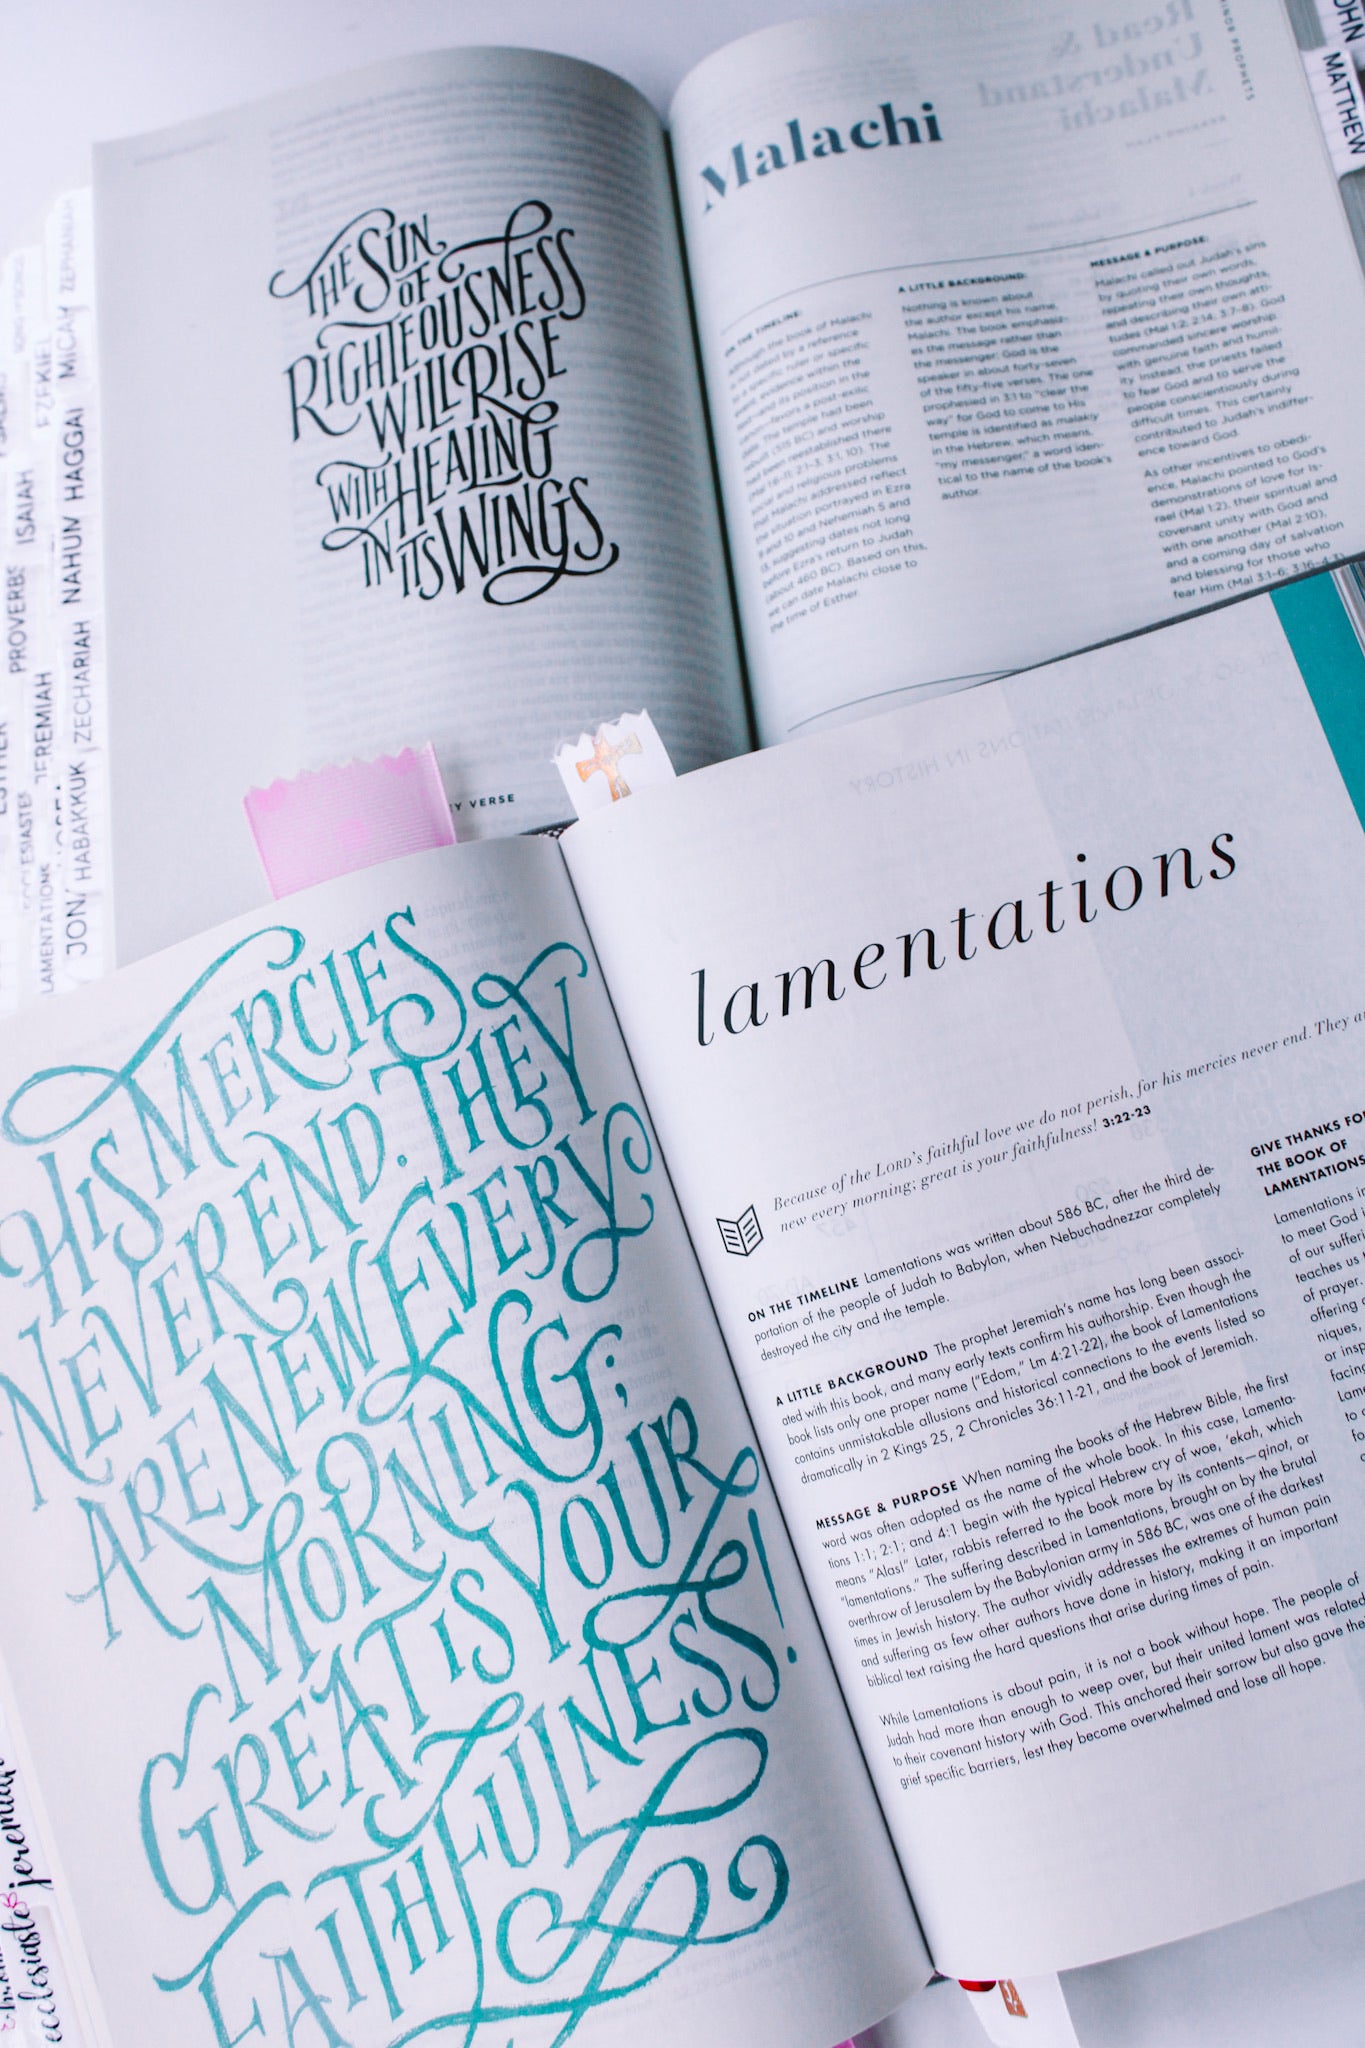 THE SUN
OF
RIGHTEOUSNESS
WILL RISE
WITH HEALING
IN ITS WINGS
Y VERSE
Malachi
Read &
Understand
Malachi
MINOR PROPHETS
ON THE TIMELINE:
Although the book of Malachi
is not dated by a reference
to a specific ruler or specific
event, evidence within the
and its position in the
favors a post-exilic
date. The temple had been
rebuilt (515 BC) and worship
had been reestablished there
(Mal 1:6-11; 2:1-3; 3:1, 10). The
social and religious problems
that Malachi addressed reflect
the situation portrayed in Ezra
9 and 10 and Nehemiah 5 and
13, suggesting dates not long
before Ezra's return to Judah
(about 460 BC). Based on this,
we can date Malachi close to
the time of Esther.
A LITTLE BACKGROUND:
Nothing is known about
the author except his name,
Malachi. The book emphasiz-
es the message rather than
the messenger; God is the
speaker in about forty-seven
of the fifty-five verses. The one
prophesied in 3:1 to "clear the
way" for God to come to His
temple is identified as malakiy
in the Hebrew, which means,
"my messenger," a word iden-
tical to the name of the book's
author.
MESSAGE & PURPOSE:
Malachi called out Judah's sins
by quoting their own words,
repeating their own thoughts,
and describing their own atti-
tudes (Mal 1:2; 2:14; 3:7-8). God
commanded sincere worship
with genuine faith and humil-
ity. Instead, the priests failed
to fear God and to serve the
people conscientiously during
difficult times. This certainly
contributed to Judah's indiffer-
ence toward God.
As other incentives to obedi-
ence, Malachi pointed to God's
demonstrations of love for Is-
rael (Mal 1:2), their spiritual and
covenant unity with God and
with one another (Mal 2:10),
and a coming day of salvation
and blessing for those who
fear Him (Mal 3:1-6; 3:16-4:
OHN
MATTHEW
ZEPHANIAH
MICAH
EZEKIEL
HAGGAI
NAHUM
ISAIAH
PROVERBS
ZECHARIAH
JEREMIAH
ESTHER
HABAKKUK
ECCLESIASTE
JON
LAMENTATIONS
HIS MERCIES
NEVER END. THEY
ARE NEW EVERY
MORNING;
GREAT IS YOUR
FAITHFULNESS!
jeremiah
ecclesiaste
THE BOOK OF LAMENTATIONS IN HISTORY
lamentations
Because of the LORD's faithful love we do not perish, for his mercies never end. They a
new every morning; great is your faithfulness! 3:22-23
ON THE TIMELINE Lamentations was written about 586 BC, after the third de-
portation of the people of Judah to Babylon, when Nebuchadnezzar completely
destroyed the city and the temple.
A LITTLE BACKGROUND The prophet Jeremiah's name has long been associ-
ated with this book, and many early texts confirm his authorship. Even though the
book lists only one proper name ("Edom," Lm 4:21-22), the book of Lamentations
contains unmistakable allusions and historical connections to the events listed so
dramatically in 2 Kings 25, 2 Chronicles 36:11-21, and the book of Jeremiah.
MESSAGE & PURPOSE When naming the books of the Hebrew Bible, the first
word was often adopted as the name of the whole book. In this case, Lamenta-
tions 1:1; 2:1; and 4:1 begin with the typical Hebrew cry of woe, 'ekah, which
means "Alas!" Later, rabbis referred to the book more by its contents—qinot, or
"lamentations." The suffering described in Lamentations, brought on by the brutal
overthrow of Jerusalem by the Babylonian army in 586 BC, was one of the darkest
times in Jewish history. The author vividly addresses the extremes of human pain
and suffering as few other authors have done in history, making it an important
biblical text raising the hard questions that arise during times of pain.
While Lamentations is about pain, it is not a book without hope. The people of
Judah had more than enough to weep over, but their united lament was related
to their covenant history with God. This anchored their sorrow but also gave the
grief specific barriers, lest they become overwhelmed and lose all hope.
GIVE THANKS FO
THE BOOK OF
LAMENTATIONS
Lamentations in
to meet God i
of our sufferi
teaches us
of prayer.
offering
niques,
or insp
facin
Lam
to